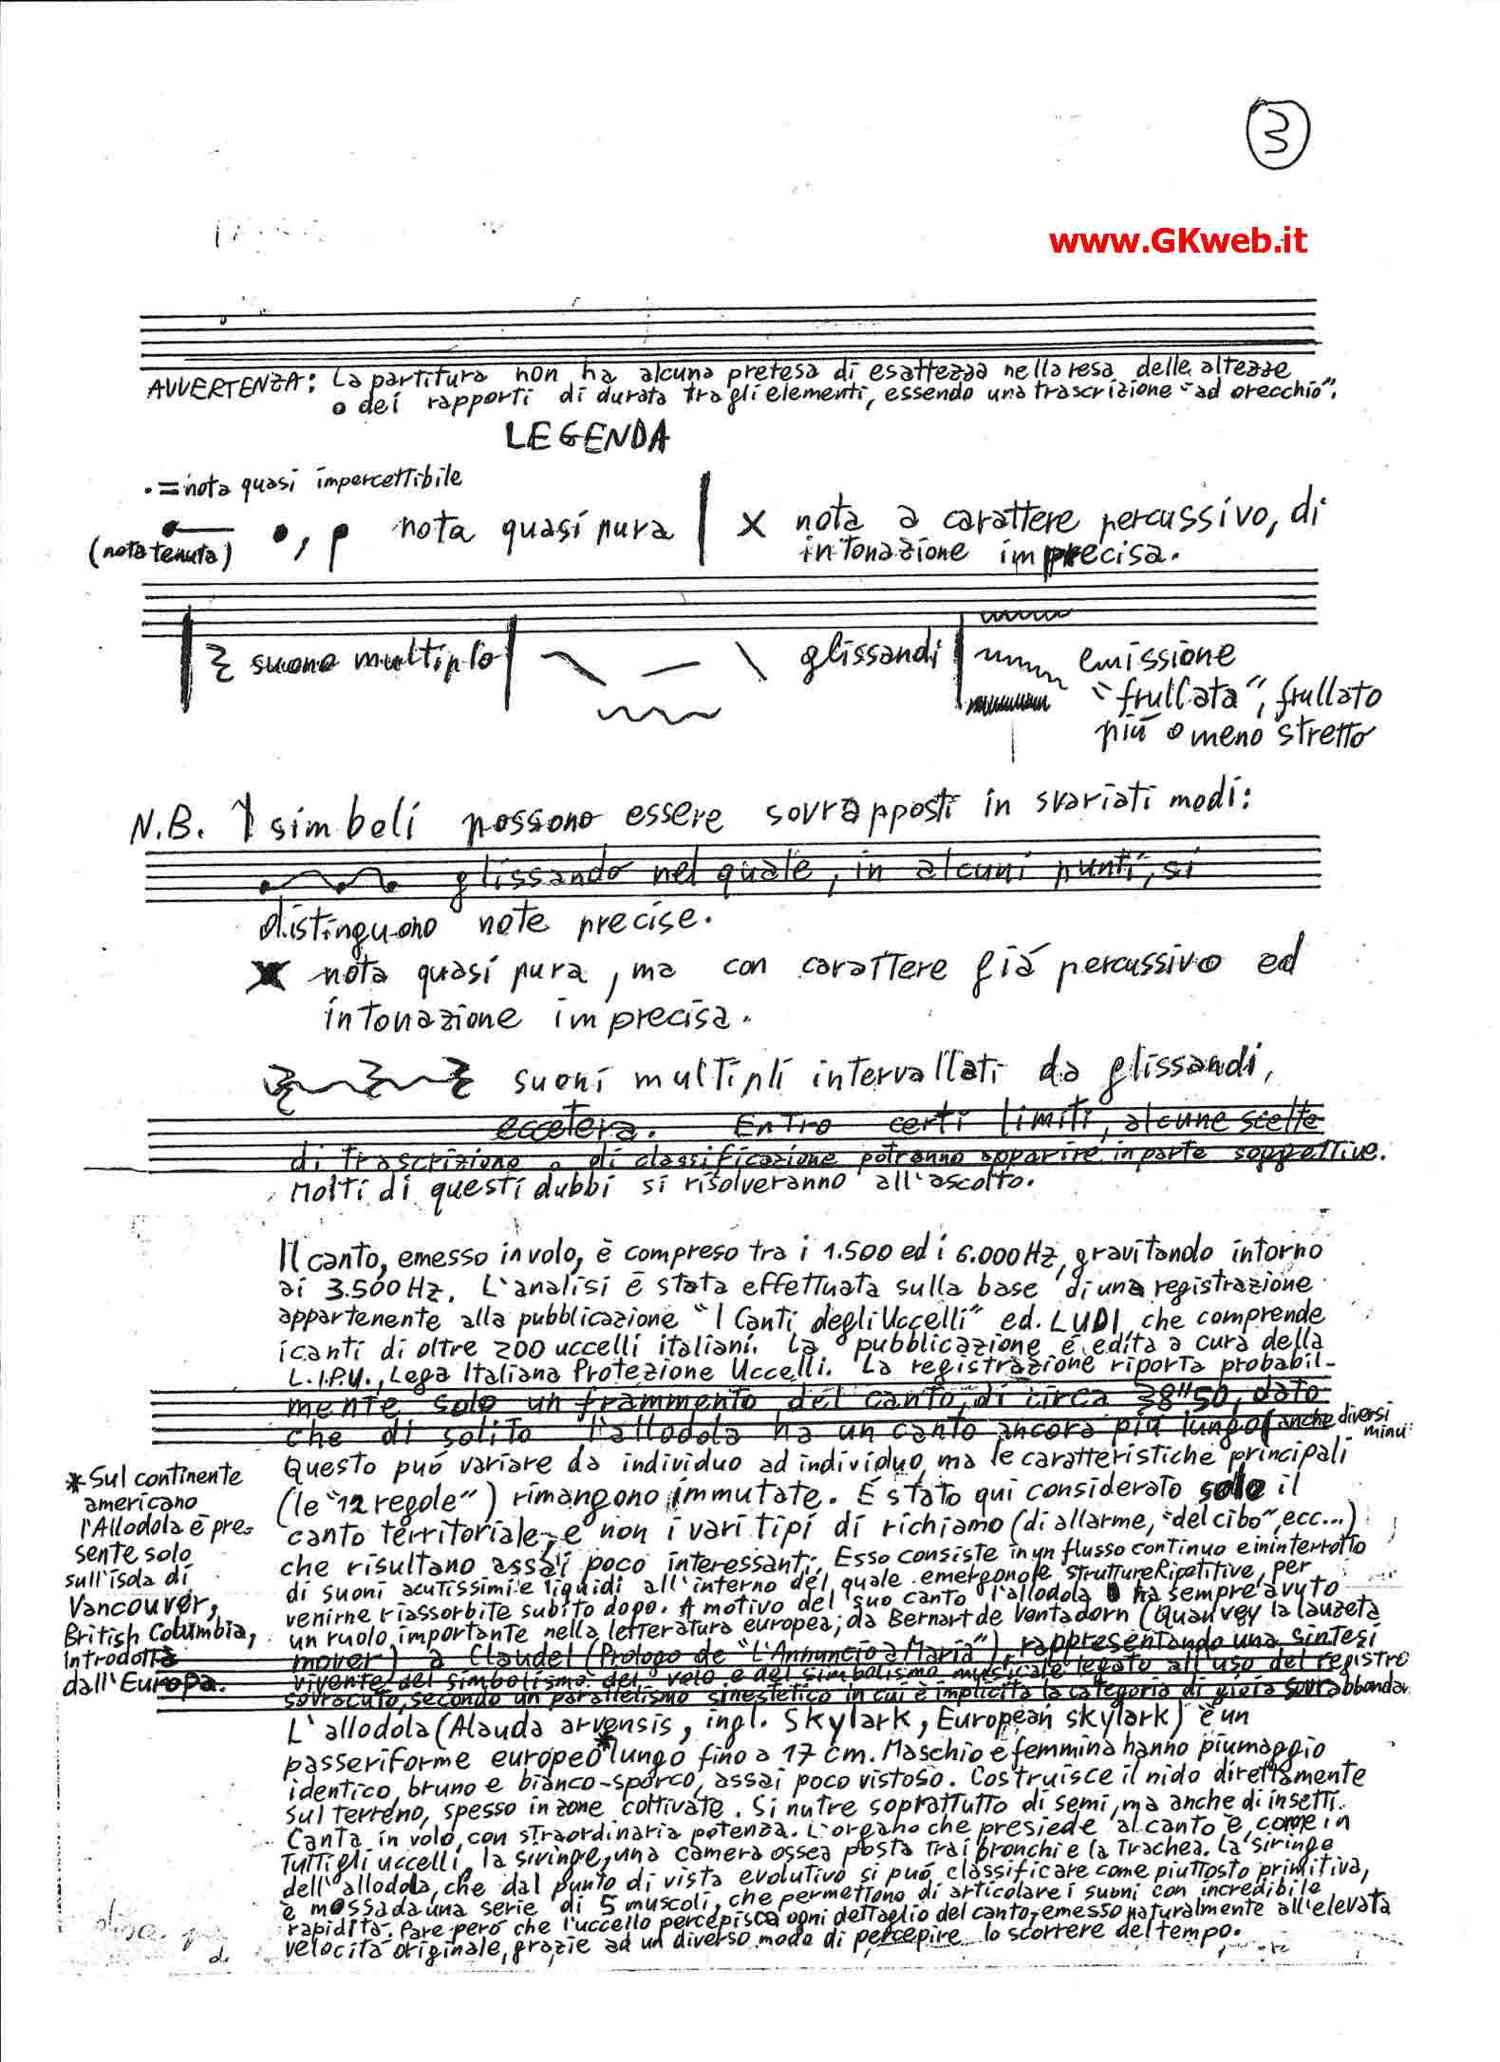 3
www.GKweb.it
AVVERTENZA: La partitura non ha alcuna pretesa di esattezza nella resa delle altezze
o dei rapporti di durata tra gli elementi, essendo una trascrizione "ad orecchio".
LEGENDA
. = nota quasi impercettibile
(nota tenuta) , nota quasi pura | x nota a carattere percussivo, di
intonazione imprecisa.
suono multiplo glissandi emissione
"frullata", frullato
più o meno stretto
N.B. I simboli possono essere sovrapposti in svariati modi:
glissando nel quale, in alcuni punti, si
distinguono note precise.
x nota quasi pura, ma con carattere già percussivo ed
intonazione imprecisa.
suoni multipli intervallati da glissandi,
eccetera. Entro certi limiti, alcune scelte
di trascrizione o di classificazione potranno apparire in parte soggettive.
Molti di questi dubbi si risolveranno all'ascolto.
Il canto, emesso in volo, è compreso tra i 1.500 ed i 6.000 Hz, gravitando intorno
ai 3.500 Hz. L'analisi è stata effettuata sulla base di una registrazione
appartenente alla pubblicazione "I Canti degli Uccelli" ed. LUDI, che comprende
i canti di oltre 200 uccelli italiani. La pubblicazione è edita a cura della
L.I.P.U., Lega Italiana Protezione Uccelli. La registrazione riporta probabil-
mente solo un frammento del canto, di circa 38"50, dato
che di solito l'allodola ha un canto ancora più lungo (anche diversi
minu
Questo può variare da individuo ad individuo, ma le caratteristiche principali
(le "12 regole") rimangono immutate. È stato qui considerato solo il
canto territoriale, e non i vari tipi di richiamo (di allarme, "del cibo", ecc...)
che risultano assai poco interessanti. Esso consiste in un flusso continuo e ininterrotto
di suoni acutissimi e liquidi all'interno del quale emergono le strutture ripetitive, per
venirne riassorbite subito dopo. A motivo del suo canto l'allodola ha sempre avuto
un ruolo importante nella letteratura europea; da Bernart de Ventadorn (Quan vey la lauzeta
mover) a Claudel (Prologo de "L'Annuncio a Maria"), rappresentando una sintesi
vivente del simbolismo del volo e del simbolismo musicale legato all'uso del registro
sovracuto, secondo un parallelismo sinestetico in cui è implicita la categoria di gioia sovrabbondan.
* Sul continente
americano
l'Allodola è pre-
sente solo
sull'isola di
Vancouver,
British Columbia,
introdotta
dall'Europa.
L'allodola (Alauda arvensis, ingl. Skylark, European skylark) è un
passeriforme europeo* lungo fino a 17 cm. Maschio e femmina hanno piumaggio
identico, bruno e bianco-sporco, assai poco vistoso. Costruisce il nido direttamente
sul terreno, spesso in zone coltivate. Si nutre soprattutto di semi, ma anche di insetti.
Canta in volo, con straordinaria potenza. L'organo che presiede al canto è, come in
tutti gli uccelli, la siringe, una camera ossea posta tra i bronchi e la trachea. La siringe
dell'allodola, che dal punto di vista evolutivo si può classificare come piuttosto primitiva,
è mossa da una serie di 5 muscoli, che permettono di articolare i suoni con incredibile
rapidità. Pare però che l'uccello percepisca ogni dettaglio del canto, emesso naturalmente all'elevata
velocità originale, grazie ad un diverso modo di percepire lo scorrere del tempo.